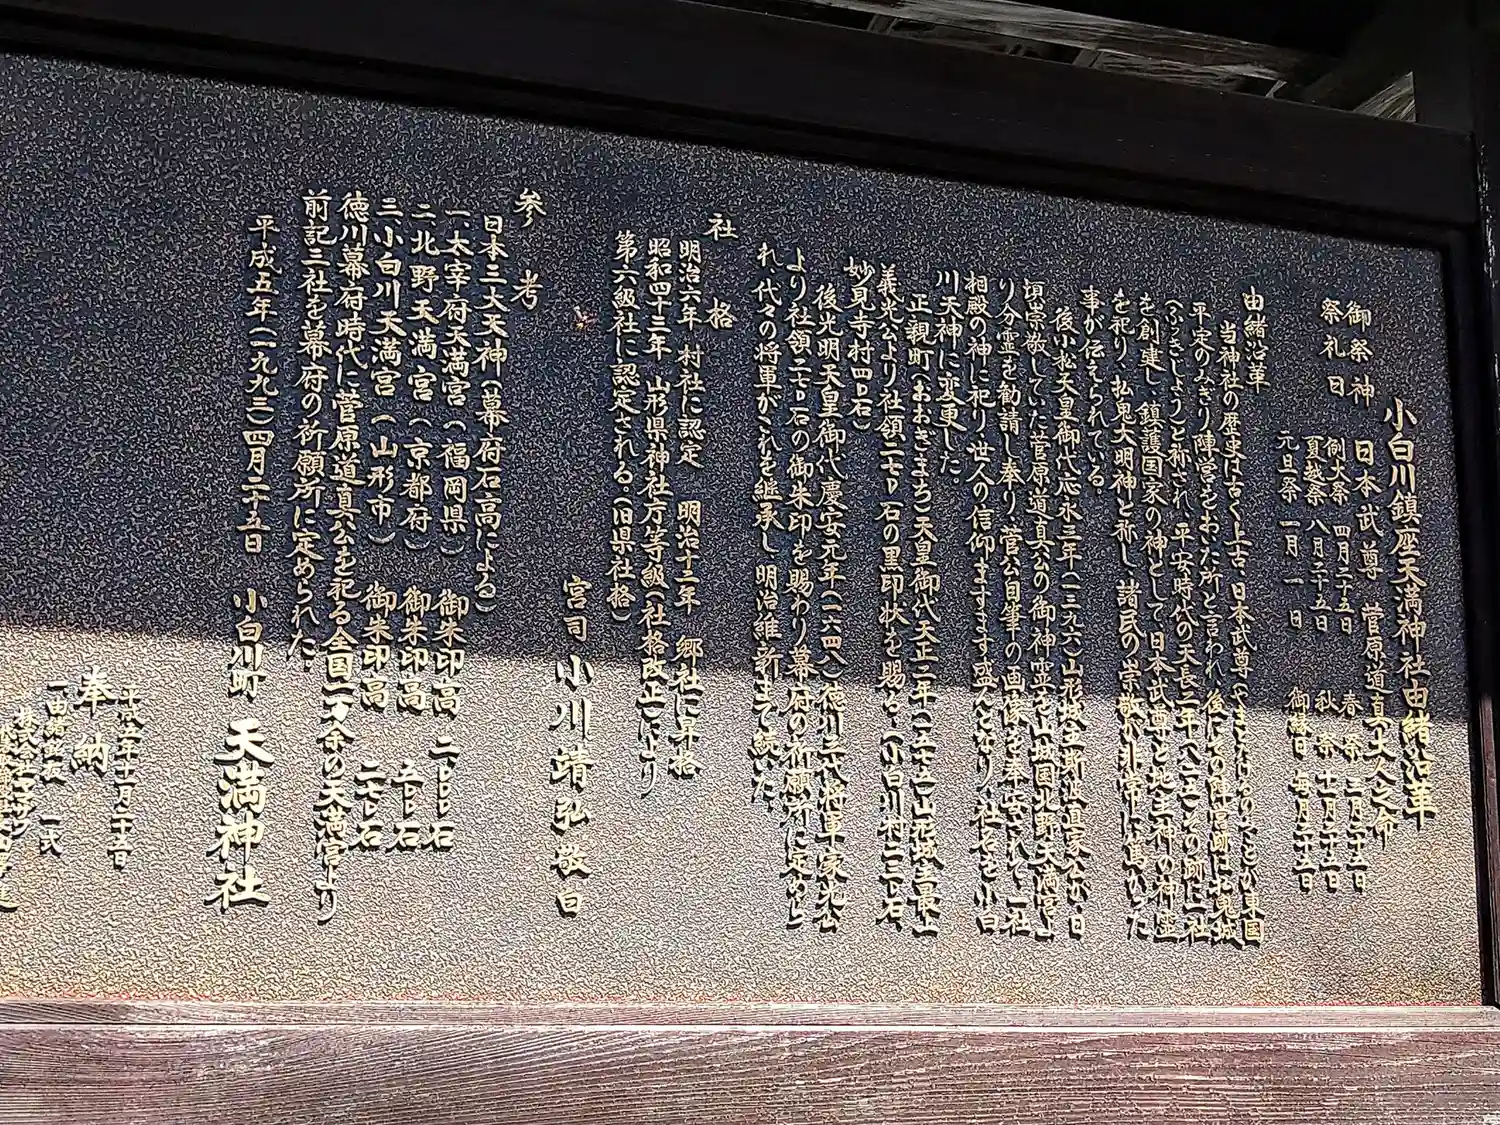 小白川鎮座天満神社由緒沿革
御祭神 日本武尊 菅原道真大人之命
祭礼日 例大祭 四月二十五日 春祭 三月二十五日
夏越祭 八月二十五日 秋祭 十一月二十五日
元旦祭 一月一日 御縁日 毎月二十五日
由緒沿革
当神社の歴史は古く上古、日本武尊(やまとたけるのみこと)が東国
平定のみぎり陣営をおいた所と言われ、後にその陣営跡に
(ふうさしょう)と称され、平安時代の天長二年(八二五)その跡に一社
を創建し、鎮護国家の神として日本武尊と地主神の神霊
を祀り、払鬼大明神と称し、諸民の崇敬が非常に篤かった
事が伝えられている。
後小松天皇御代応永三年(一三九六)山形城主斯波直家公が日
頃崇敬していた菅原道真公の御神霊を山城国北野天満宮よ
り分霊を勧請し奉り菅公自筆の画像を奉安されて、一社
相殿の神に祀り世人の信仰ますます盛んとなり、社名を小白
川天神に変更した。
正親町(おおぎまち)天皇御代天正三年(一五七五)山形城主最上
義光公より社領二七〇石の黒印状を賜る。(小白川村二三〇石
妙見寺村四〇石)
後光明天皇御代慶安元年(一六四八)徳川三代将軍家光公
より社領二七〇石の御朱印を賜わり幕府の祈願所に定めら
れ、代々の将軍がこれを継承し明治維新まで続いた。
社格
明治六年 村社に認定 明治十二年 郷社に昇格
昭和四十三年 山形県神社庁等級(社格改正)により
第六級社に認定される。(旧県社格)
宮司 小川靖弘敬白
参考
日本三大天神(幕府石高による)
一、太宰府天満宮(福岡県) 御朱印高 二〇〇〇石
二、北野天満宮(京都府) 御朱印高 五〇〇石
三、小白川天満宮(山形市) 御朱印高 二七〇石
徳川幕府時代に菅原道真公を祀る全国一万余の天満宮より
前記三社を幕府の祈願所に定められた。
平成五年(一九九三)四月二十五日 小白川町 天満神社
奉納
一、由緒 一式